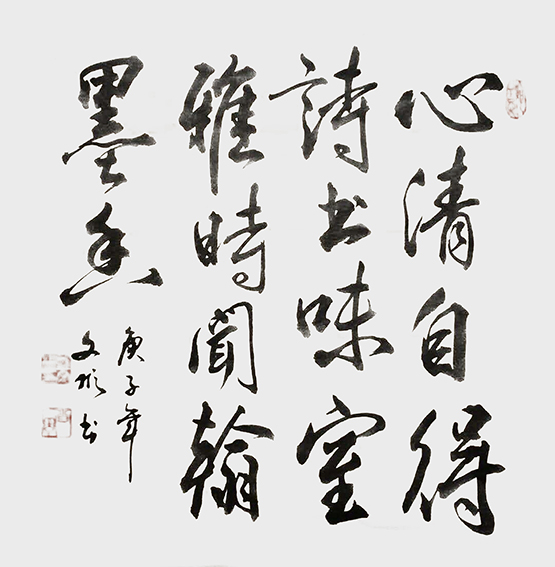 心清自得
詩书味室
雅時聞翰
墨香
庚子年
文书